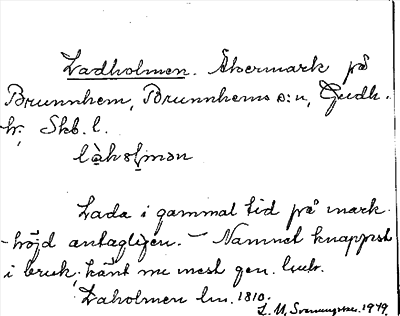 Ladholmen. Åkermark på
Brunnhem, Brunnhems s:n, Gudh.
h., Skb. l.
làhol̥mən
Lada i gammal tid på mark-
-höjd antagligen. — Namnet knappast
i bruk, känt nu mest gen. lantm.
Laholmen lm. 1810.
1949.